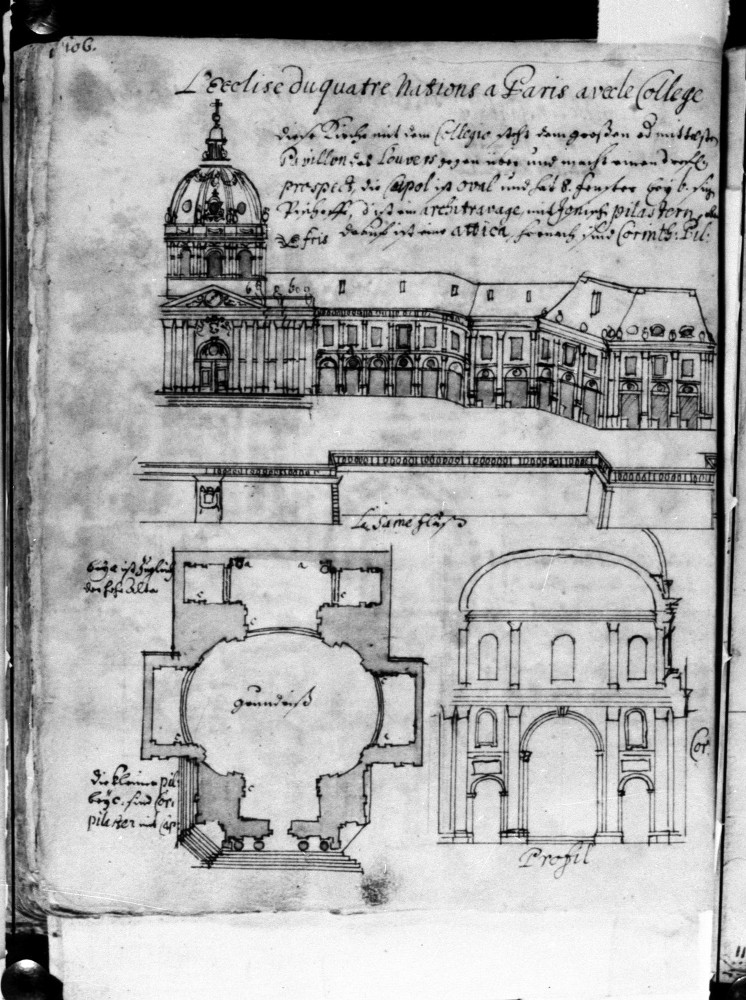 106.
L'Eeclise du quatre Nations a Paris avec le College
diese Kirche mit dem Collegio steht dem großen od mittelsten
Pavillon des Louvers gegen über und macht einen
prospect, die Cupol ist oval und hat 8. fenster bey b.
ist ein architravage, mit Jonisch pilastern
fris darauf ist eine attica, hernach sind Corinth: Pil:
b b
La Saine fluß
bey a ist zugleich
der hohe Alta
a a
c c
c c
grundriß
c c
c
die kleinen pil:
bey c. sind Cor:
pilaster
Cor.
Profil
11